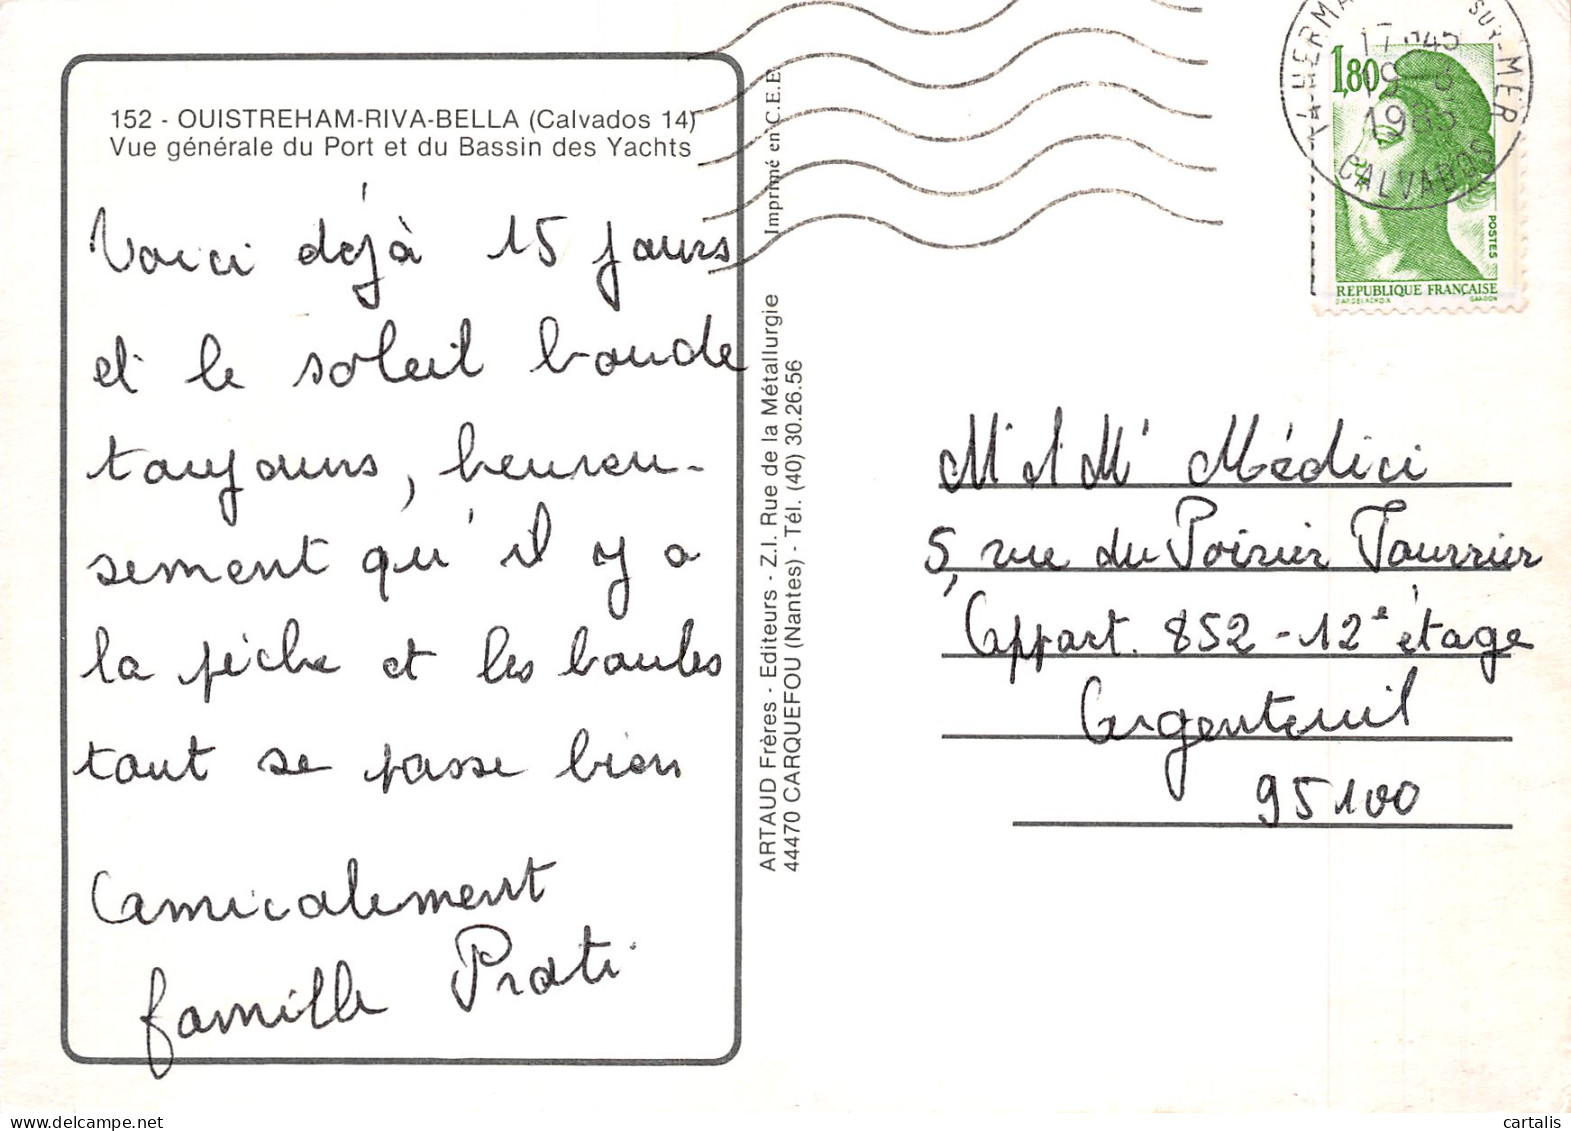 152 - OUISTREHAM-RIVA-BELLA (Calvados 14)
Vue générale du Port et du Bassin des Yachts
Voici déjà 15 jours
et le soleil boude
toujours, heureu-
sement qu'il y a
la pêche et les boules
tout se passe bien
Amicalement
famille Prati
Imprimé en C.E.E.
ARTAUD Frères - Editeurs - Z.I. Rue de la Métallurgie
44470 CARQUEFOU (Nantes) - Tél. (40) 30.26.56
SUR-MER
17H45
1985
CALVADOS
1,80
POSTES
REPUBLIQUE FRANÇAISE
D'AP. DELACROIX GANDON
Mr & Me Médici
5, rue du Poirier Fourrier
Appart. 852 - 12e étage
Argenteuil
95100
cartalis